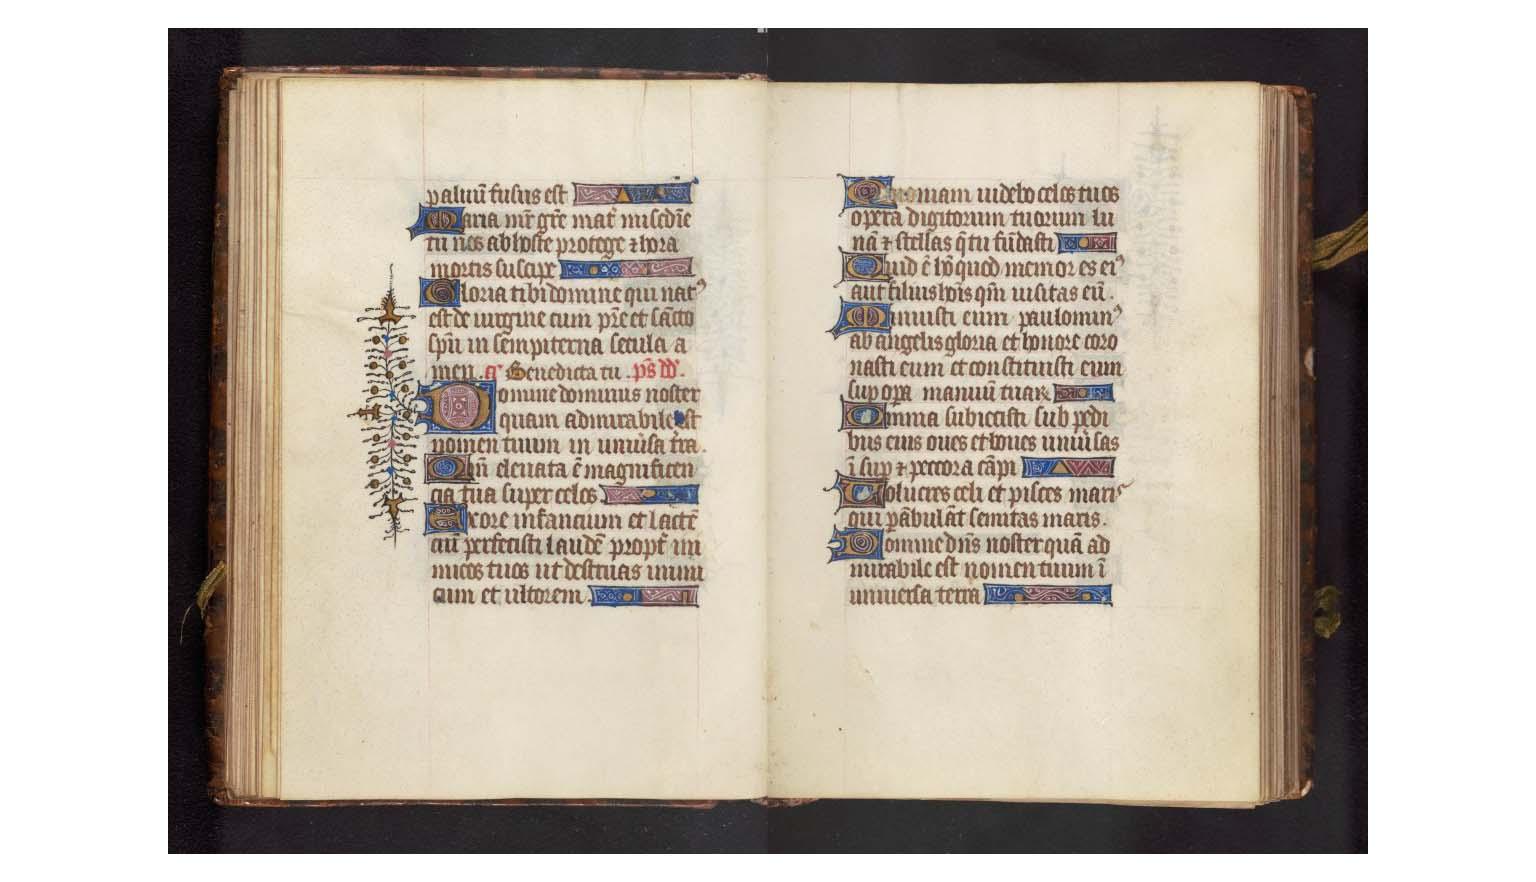 paluũ fusus est
Maria mr̃ gr̃e mat̃ mis̃cdĩe
tu nos ab hoste protege ⁊ hora
mortis suscipe
Gloria tibi domine qui natꝰ
est de virgine cum pr̃e et sãcto
spũ in sẽmpiterna secula a
men. añ Benedicta tu. pŝ dd̃.
Domine dominus noster
quam admirabile est
nomen tuum in univ̾sa t̃ra.
Qm̃ elevata ẽ magnificen
cia tua super celos
Ex ore infancium et lactẽ
ciũ perfecisti laudẽ propt̃ in
micos tuos ut destruas inimi
cum et ultorem
Quoniam videbo celos tuos
opera digitorum tuorum lu
nã ⁊ stellas q̃ tu fũdasti
Quid ẽ hõ quod memor es eiꝰ
aut filius hoĩs qm̃ visitas eũ.
Minuisti eum paulominꝰ
ab angelis gloria et honore coro
nasti eum et constituisti eum
sup oꝑa manuũ tuaꝝ
Omnia subiecisti sub pedi
bus eius oves et boves univ̾sas
ĩsup ⁊ peccora cãpi
Volucres celi et pisces maris
qui pãbulãt semitas maris.
Domine dñs noster quã ad
mirabile est nomen tuum ĩ
universa terra